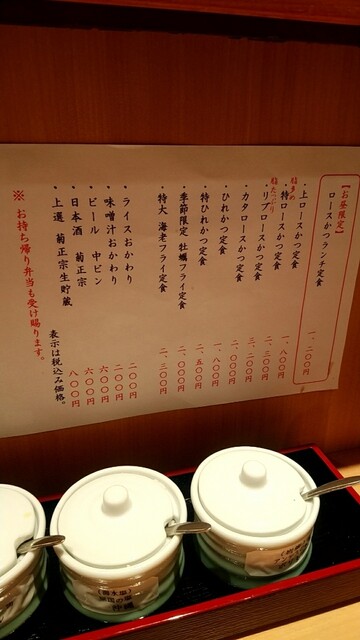 【お昼限定】
ロースかつランチ定食 一、二〇〇円
・上ロースかつ定食 一、八〇〇円
脂多め
・特ロースかつ定食 二、三〇〇円
脂たっぷり
・リブロースかつ定食 三、二〇〇円
・カタロースかつ定食 二、〇〇〇円
・ひれかつ定食 一、八〇〇円
・特ひれかつ定食 二、五〇〇円
・季節限定 牡蠣フライ定食 二、〇〇〇円
・特大 海老フライ定食 二、三〇〇円
・ライスおかわり 二〇〇円
・味噌汁おかわり 二〇〇円
・ビール 中ビン 六〇〇円
・日本酒 菊正宗 六〇〇円
・上選 菊正宗生貯蔵 八〇〇円
表示は税込み価格。
※ お持ち帰り弁当も受け賜ります。
沖縄